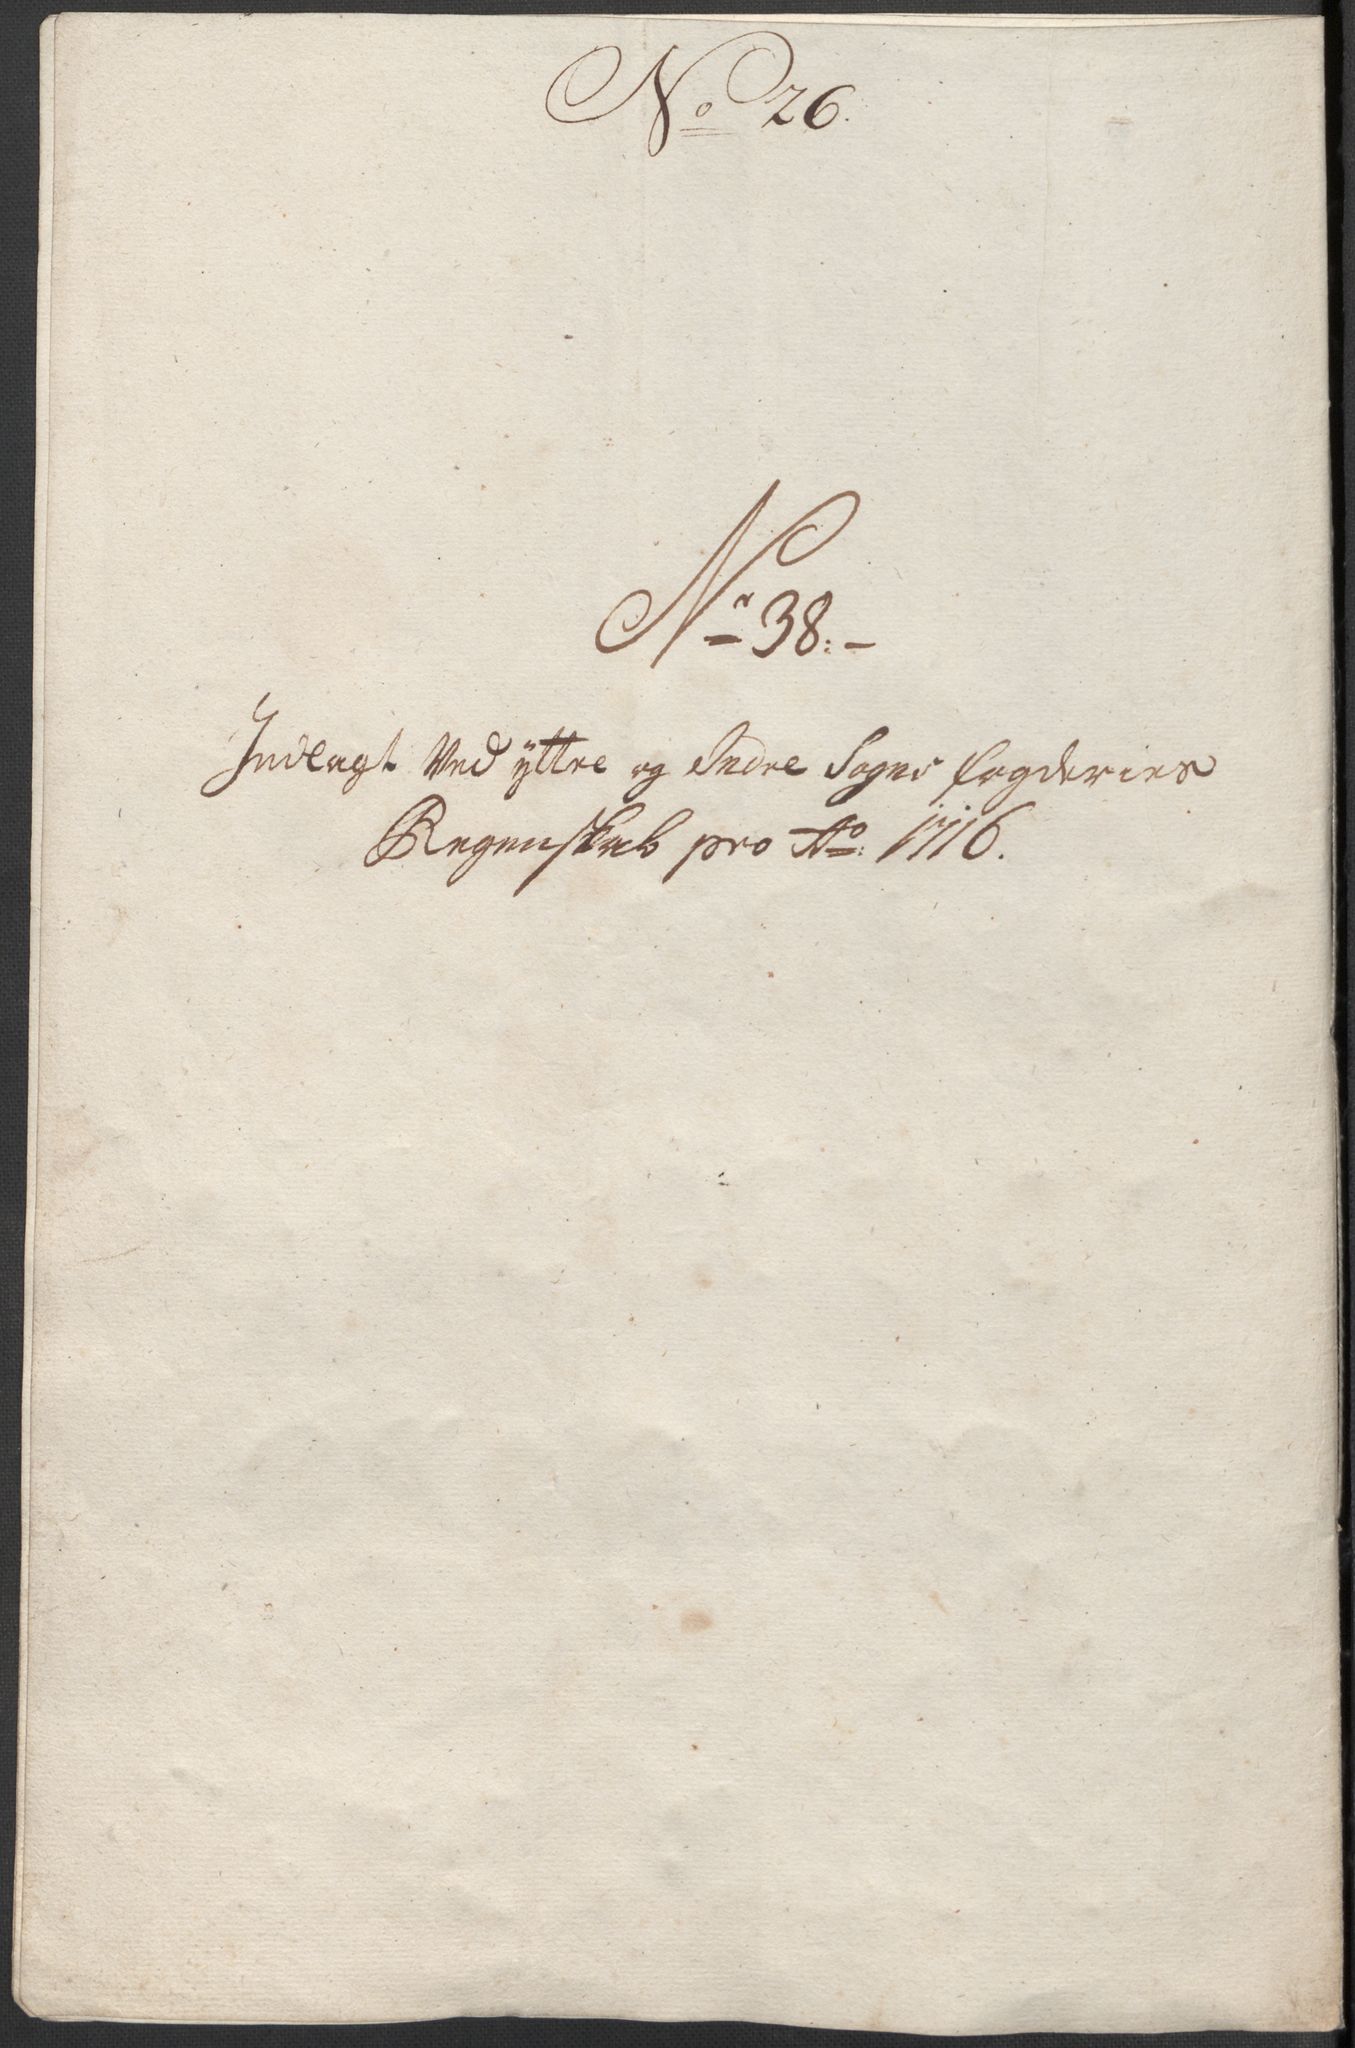 No 26.
No 38.-
Indlagt Ved ÿttre og Indre Sogns fogderies
Regenskab pro Ao: 1716.